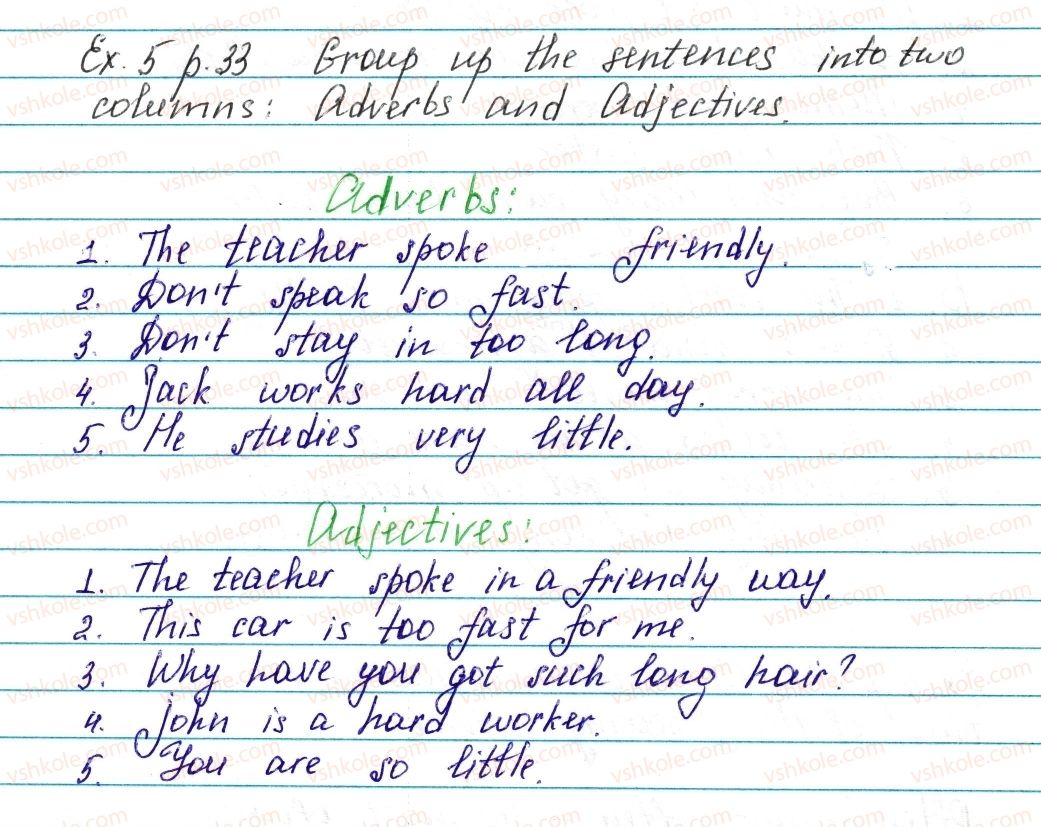 Ex. 5 p. 33 Group up the sentences into two
columns: Adverbs and Adjectives.
Adverbs:
1. The teacher spoke friendly.
2. Don't speak so fast.
3. Don't stay in too long.
4. Jack works hard all day.
5. He studies very little.
Adjectives:
1. The teacher spoke in a friendly way.
2. This car is too fast for me.
3. Why have you got such long hair?
4. John is a hard worker.
5. You are so little.
vshkole.com